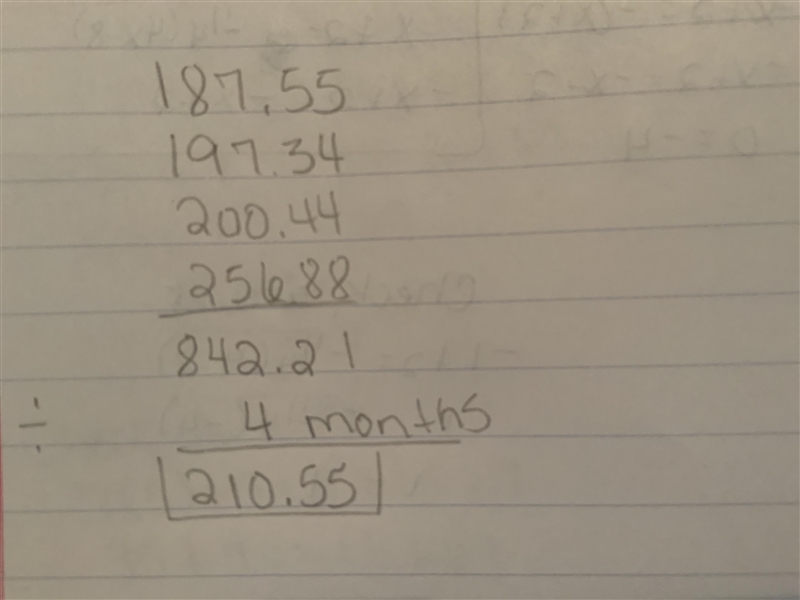 187.55
197.34
200.44
256.88
842.21
÷ 4 months
210.55